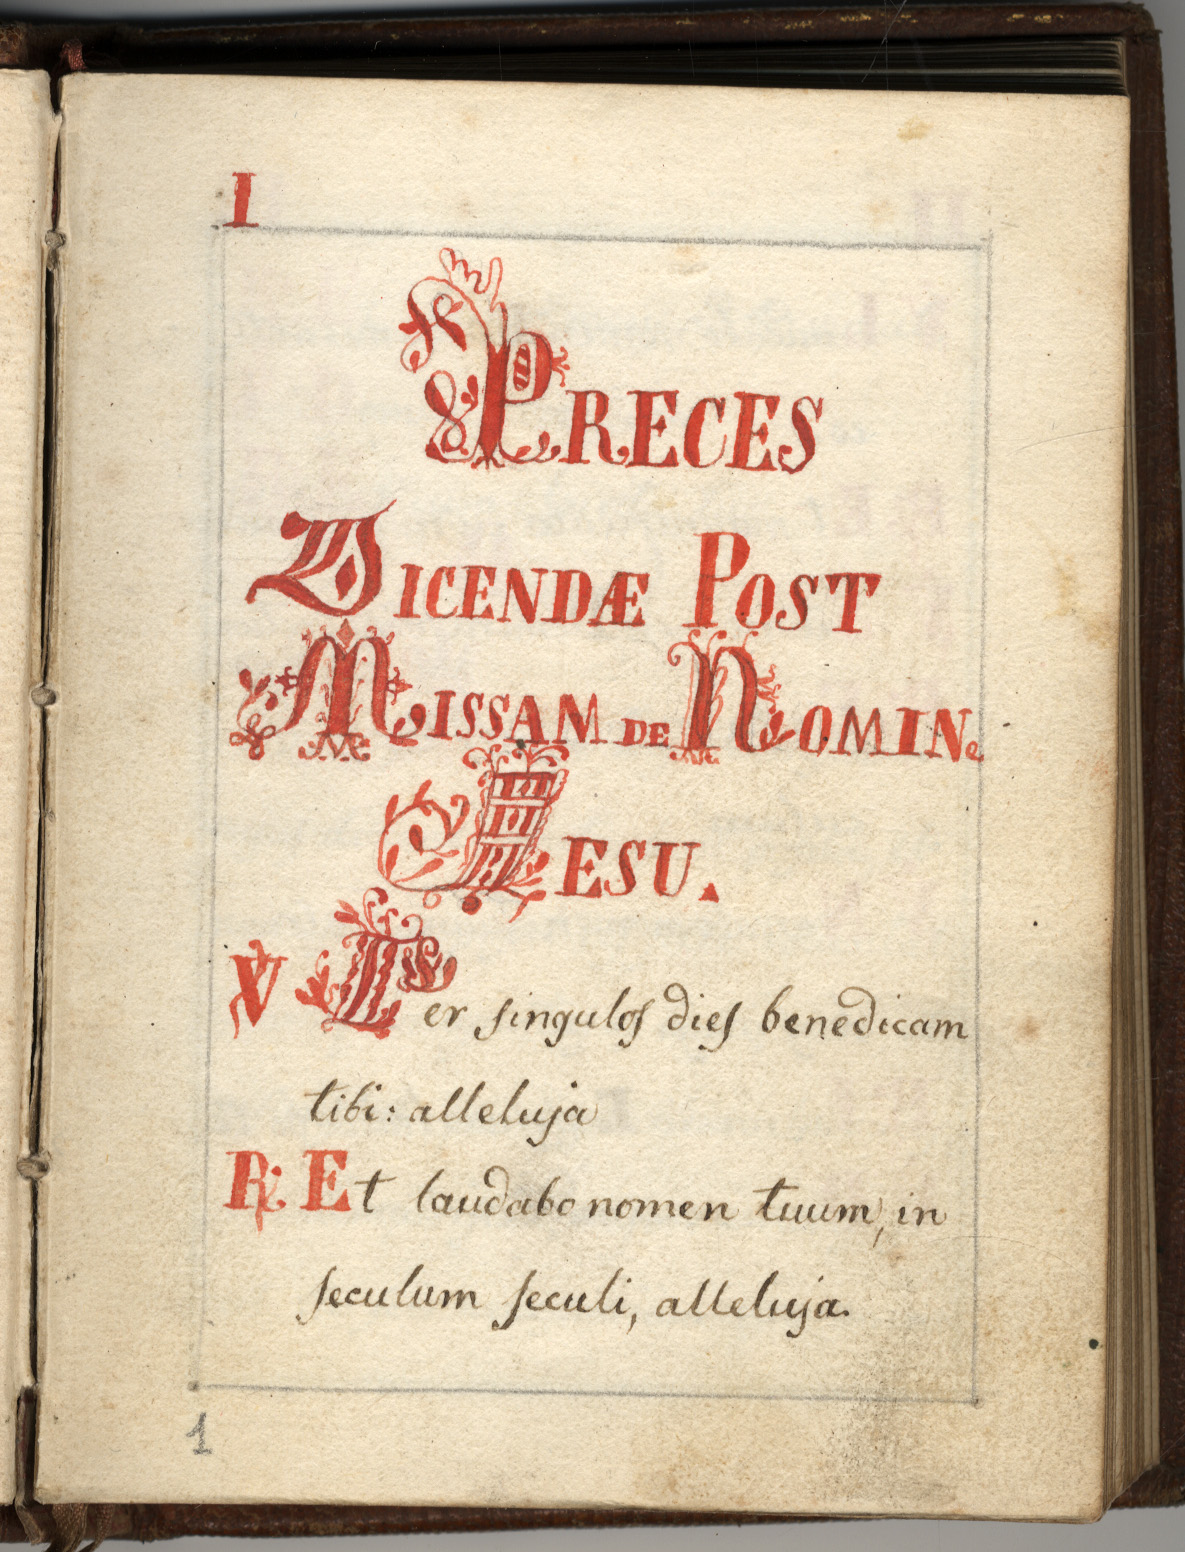 I
PRECES
DICENDÆ POST
MISSAM DE NOMINe
JESU.
℣ Per singulos dies benedicam
tibi: alleluja
℟ Et laudabo nomen tuum, in
seculum seculi, alleluja.
1